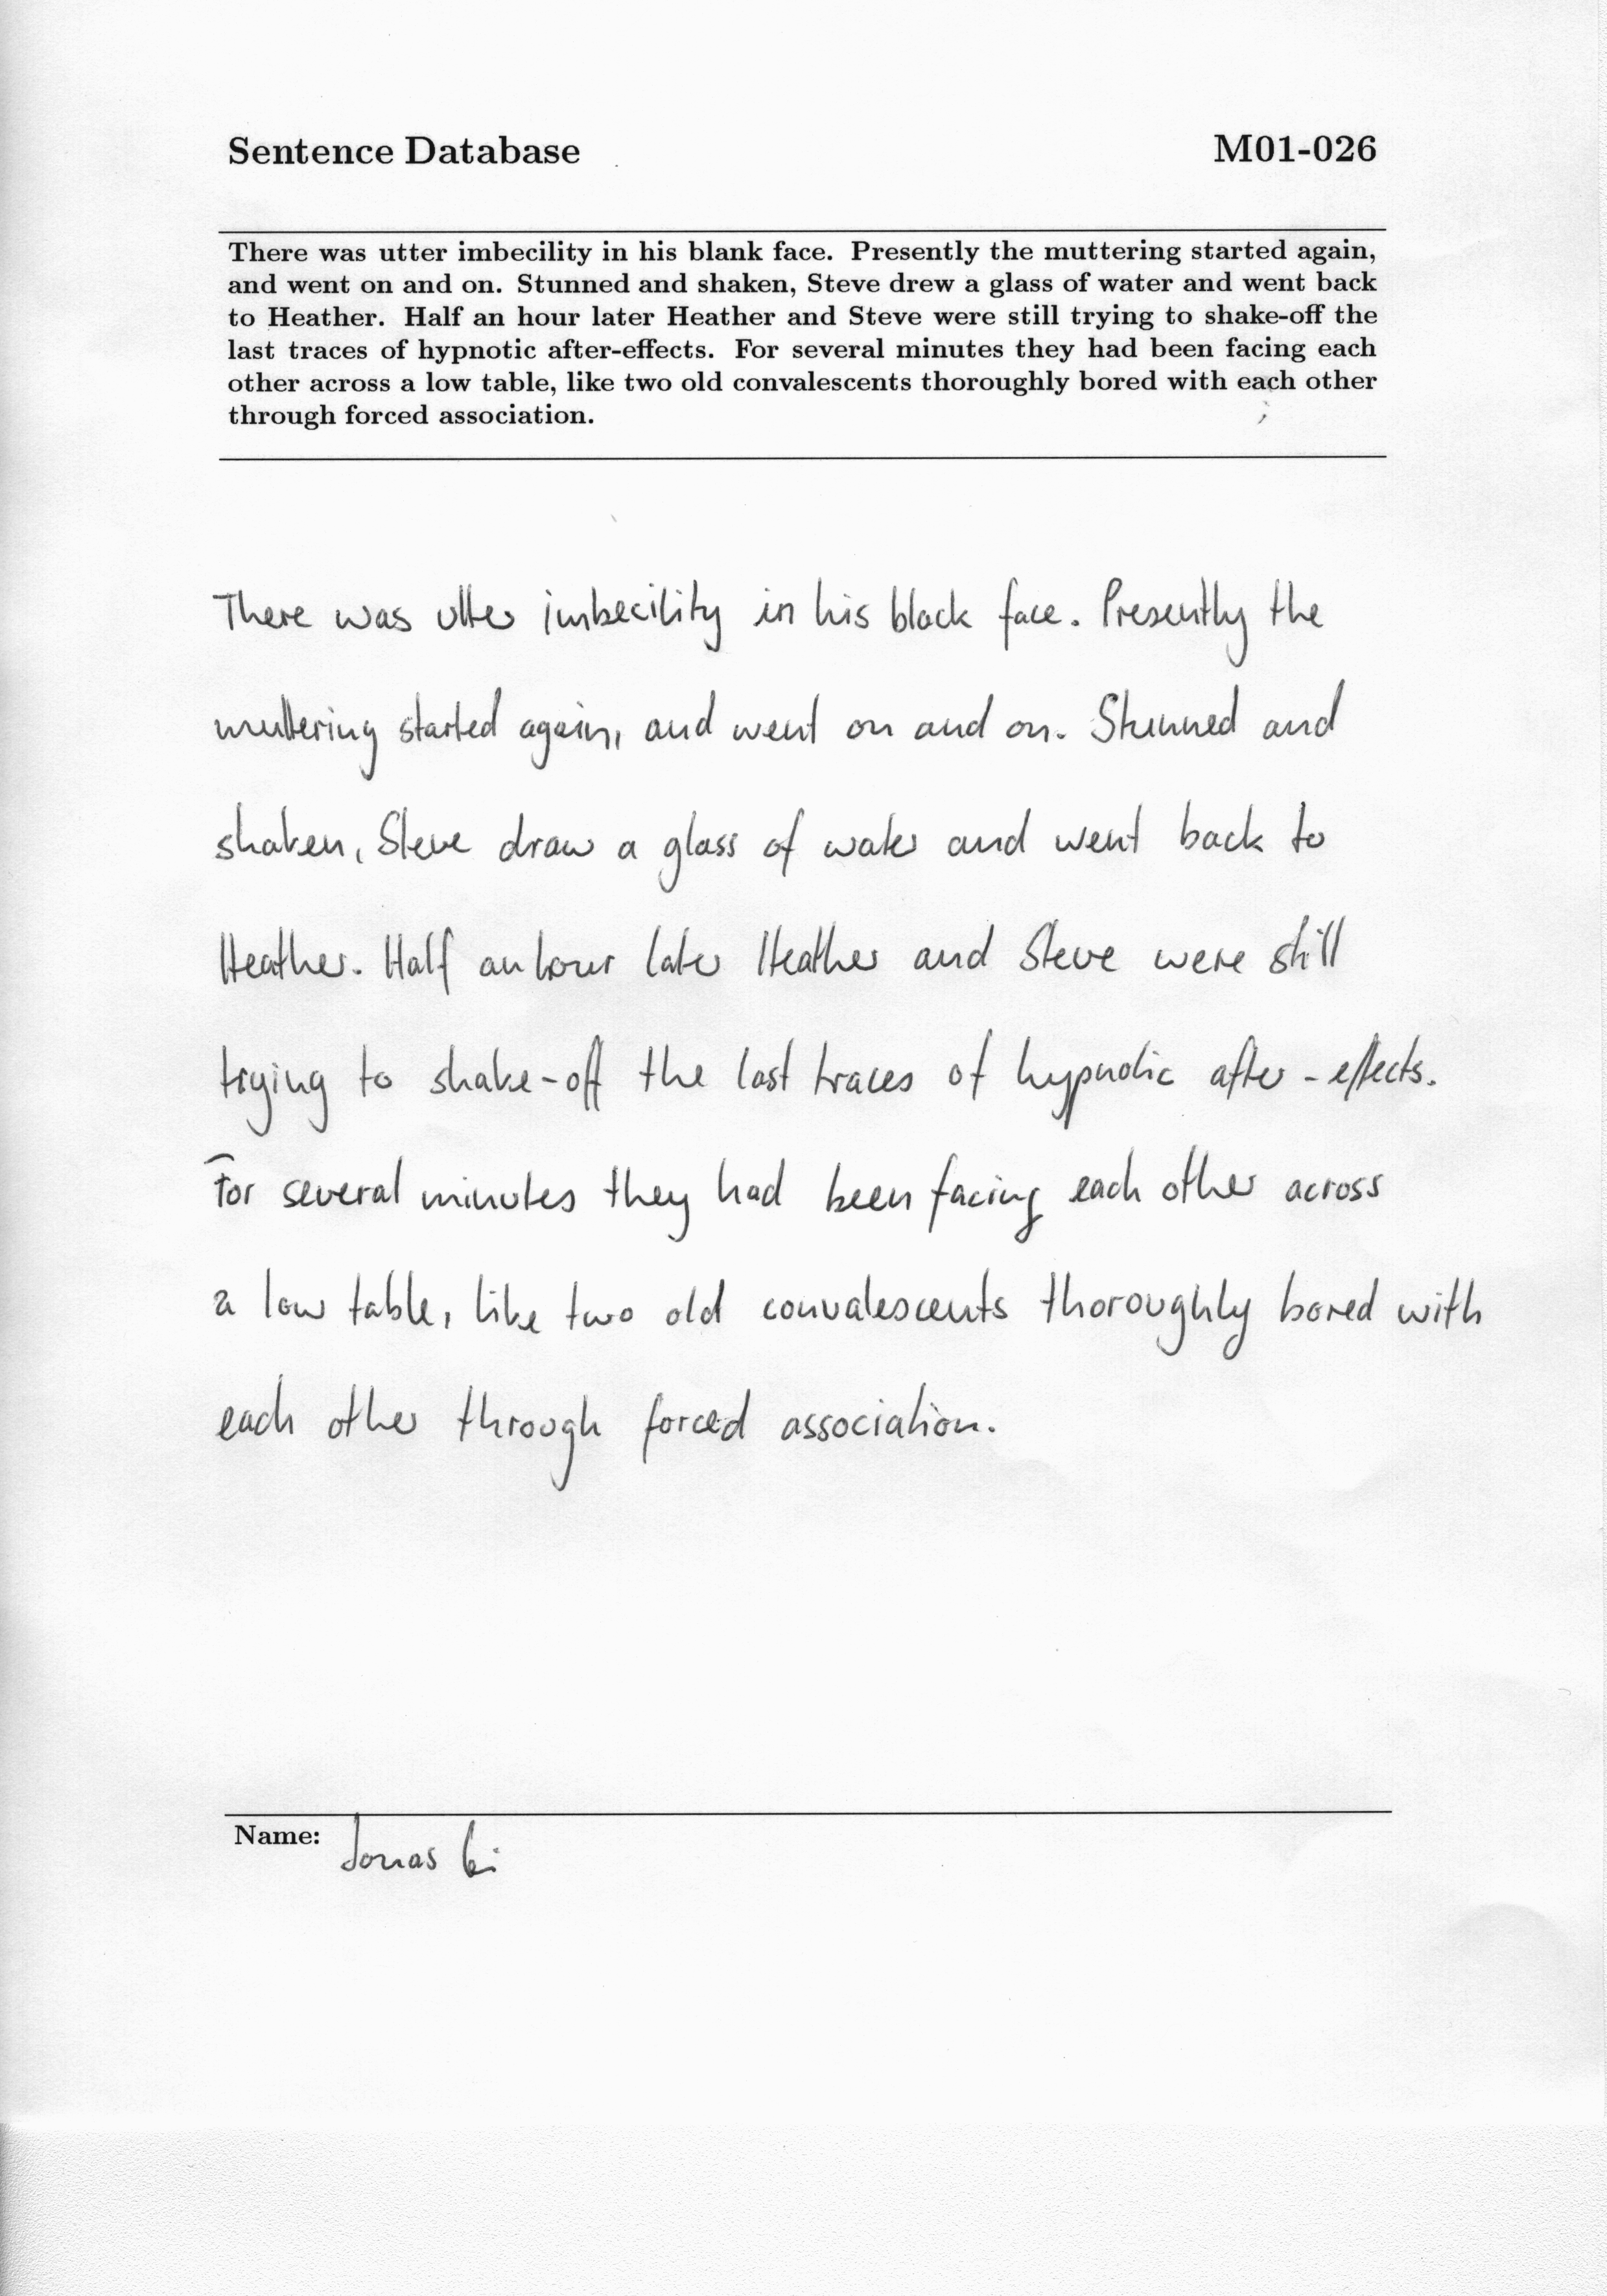 Sentence Database M01-026
There was utter imbecility in his blank face. Presently the muttering started again,
and went on and on. Stunned and shaken, Steve drew a glass of water and went back
to Heather. Half an hour later Heather and Steve were still trying to shake-off the
last traces of hypnotic after-effects. For several minutes they had been facing each
other across a low table, like two old convalescents thoroughly bored with each other
through forced association.
There was utter imbecility in his black face. Presently the
muttering started again, and went on and on. Stunned and
shaken, Steve draw a glass of water and went back to
Heather. Half an hour later Heather and Steve were still
trying to shake-off the last traces of hypnotic after-effects.
For several minutes they had been facing each other across
a low table, like two old convalescents thoroughly bored with
each other through forced association.
Name: Jonas